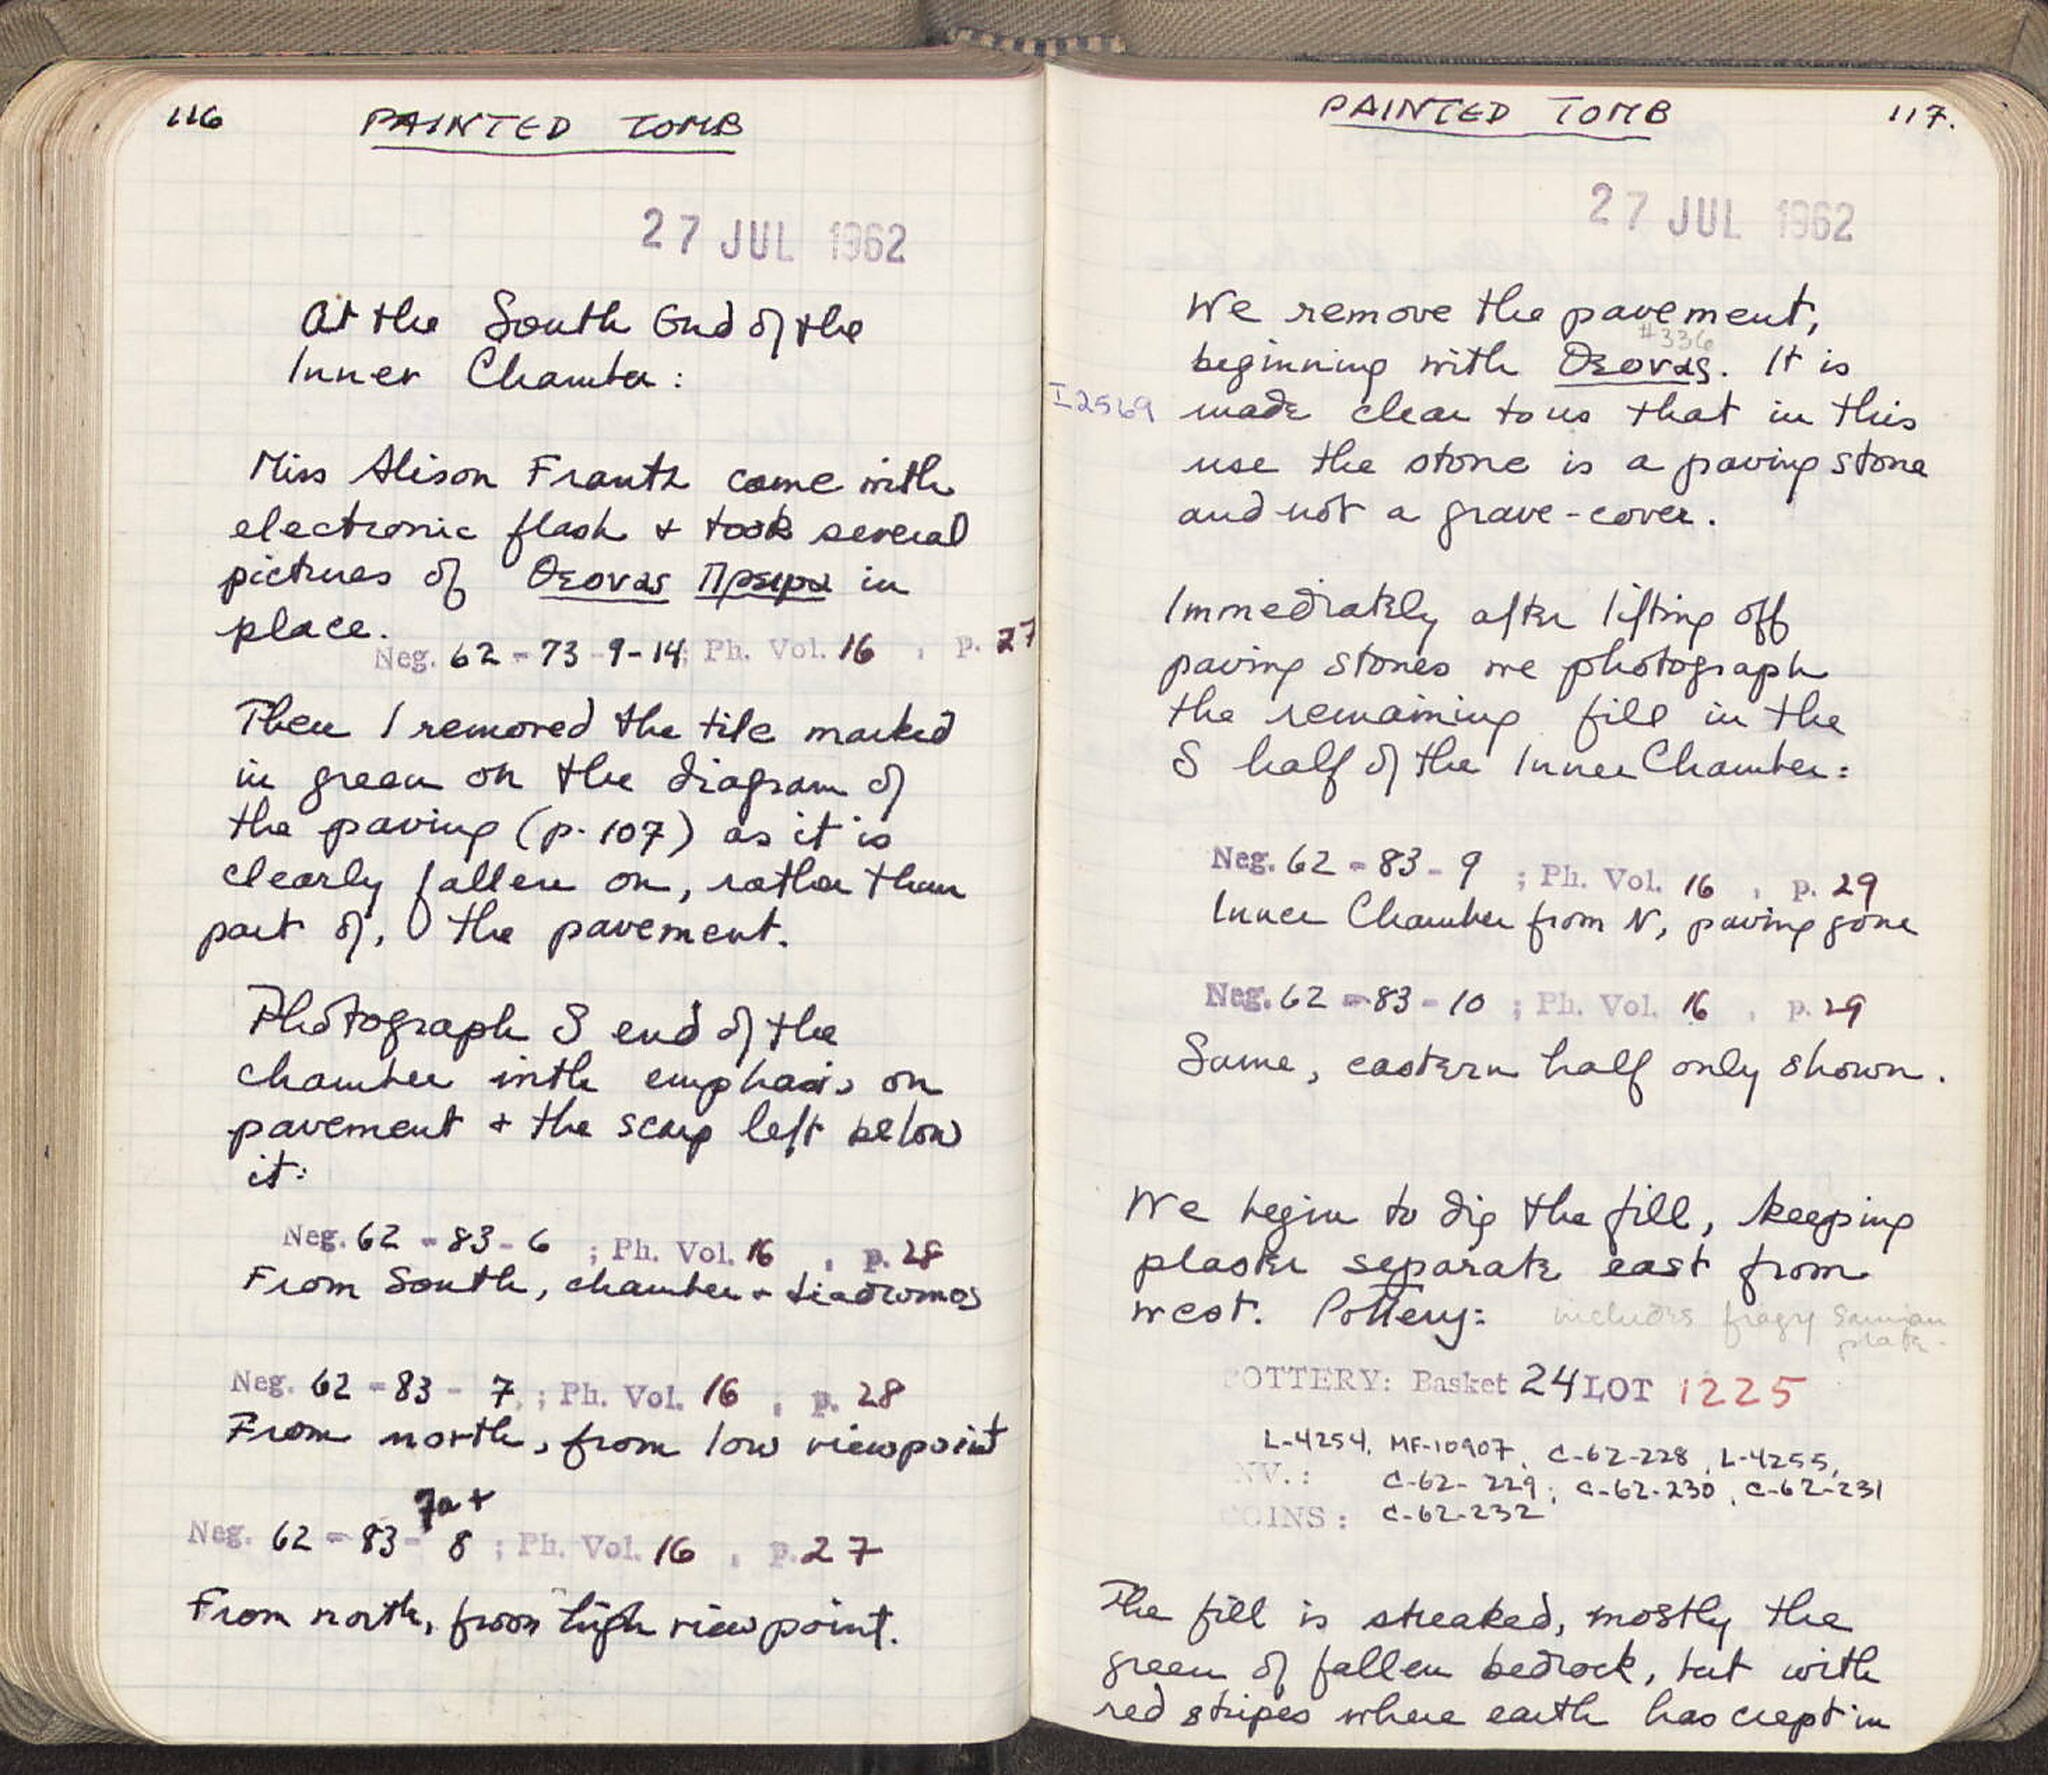 116 PAINTED TOMB
27 JUL 1962
At the South End of the
Inner Chamber:
Miss Alison Frantz came with
electronic flash + took several
pictures of Θεονας Πρειμα in
place.
Neg. 62-73-9-14; Ph. Vol. 16, p. 27
Then I removed the tile marked
in green on the diagram of
the paving (p. 107) as it is
clearly fallen on, rather than
part of, the pavement.
Photograph S end of the
chamber with emphasis on
pavement + the scarp left below
it:
Neg. 62-83-6 ; Ph. Vol. 16, p. 28
From South, chamber + diadromos
Neg. 62-83-7 ; Ph. Vol. 16, p. 28
From north, from low viewpoint
7a +
Neg. 62-83-8 ; Ph. Vol. 16, p. 27
From north, from high viewpoint.
PAINTED TOMB 117.
27 JUL 1962
We remove the pavement,
#336
beginning with Θεονας. It is
I 2569 made clear to us that in this
use the stone is a paving stone
and not a grave-cover.
Immediately after lifting off
paving stones we photograph
the remaining fill in the
S half of the Inner Chamber:
Neg. 62-83-9 ; Ph. Vol. 16, p. 29
Inner Chamber from N, paving gone
Neg. 62-83-10 ; Ph. Vol. 16, p. 29
Same, eastern half only shown.
We begin to dig the fill, keeping
plaster separate east from
west. Pottery: includes fragy Samian
plate.
POTTERY: Basket 24 LOT 1225
L-4254, MF-10907, C-62-228, L-4255,
INV.: C-62-229; C-62-230, C-62-231
COINS: C-62-232
The fill is streaked, mostly the
green of fallen bedrock, but with
red stripes where earth has crept in